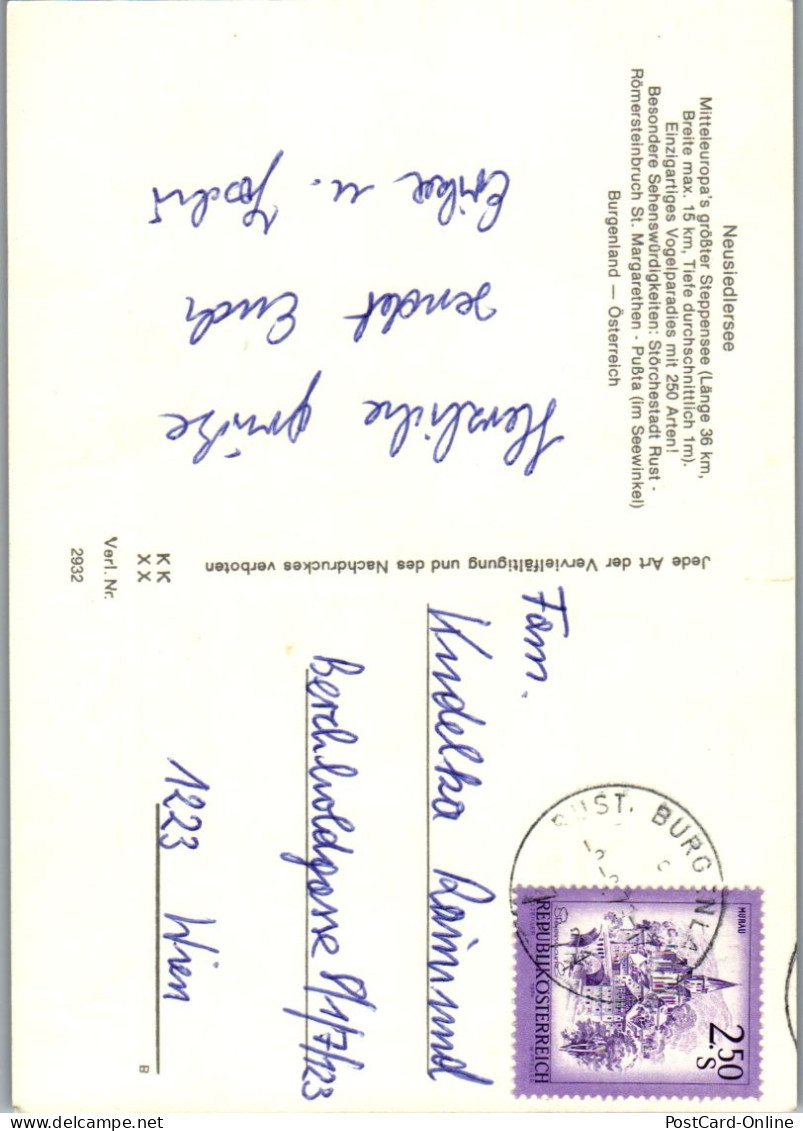 Neusiedlersee
Mitteleuropa's größter Steppensee (Länge 36 km,
Breite max. 15 km, Tiefe durchschnittlich 1m).
Einzigartiges Vogelparadies mit 250 Arten!
Besondere Sehenswürdigkeiten: Störchestadt Rust -
Römersteinbruch St. Margarethen - Pußta (im Seewinkel)
Burgenland — Österreich
Herzliche Grüße
sendet Euch
Erika u. Joschi
Jede Art der Vervielfältigung und des Nachdruckes verboten
K K
X X
Verl. Nr.
2932
Fam.
Kudelka Raimund
Berchtoldgasse 8/1/7/123
1223 Wien
RUST, BURGENLA
MURAU
2.50
S
REPUBLIK ÖSTERREICH
B
PostCard-Online